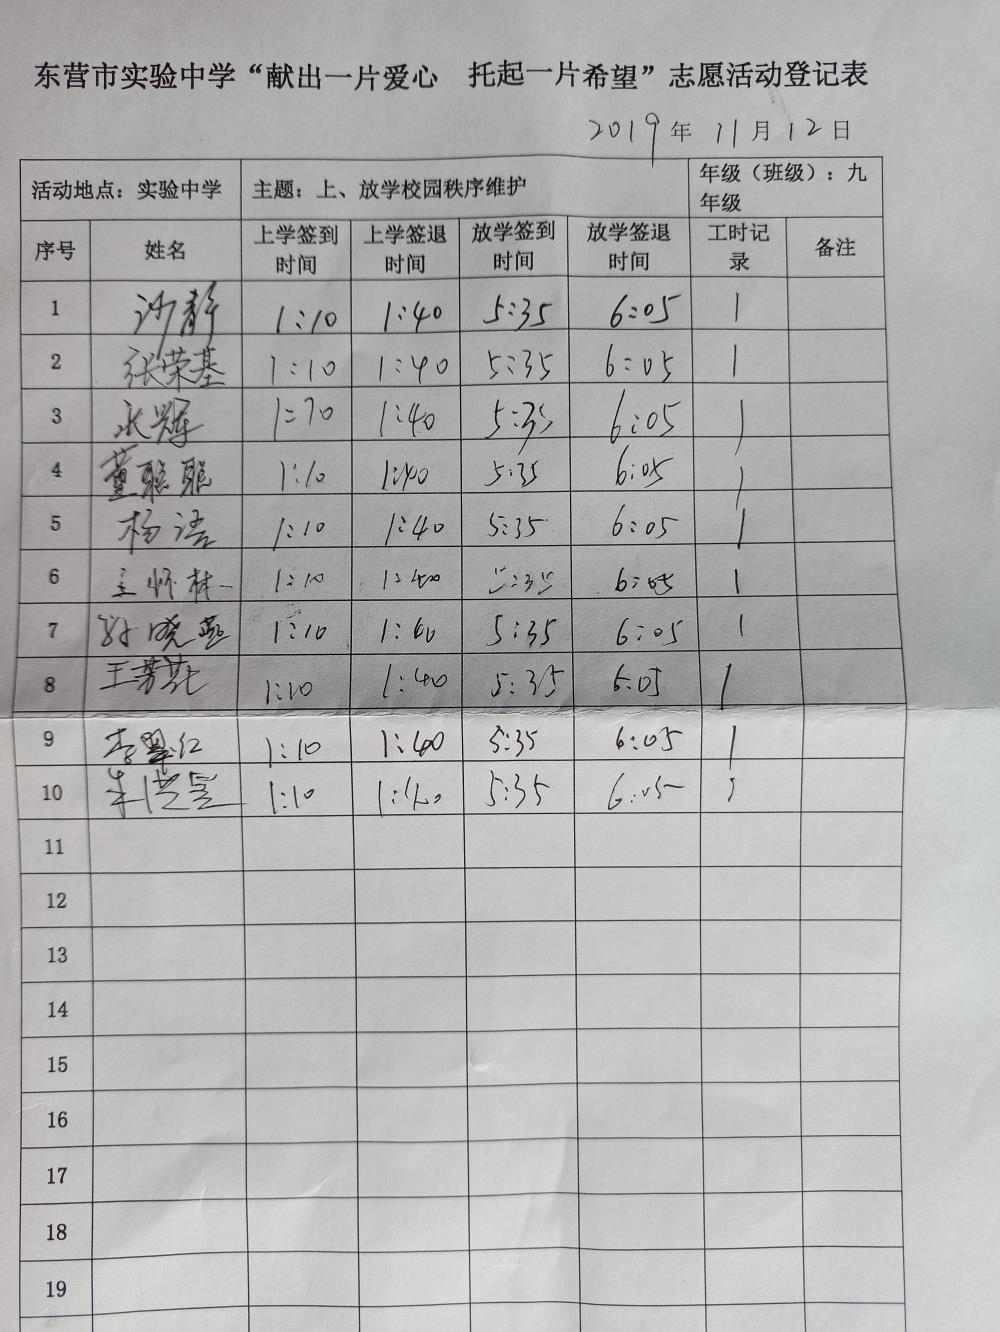 东营市实验中学“献出一片爱心 托起一片希望”志愿活动登记表
2019年 11月 12日
活动地点：实验中学 主题：上、放学校园秩序维护 年级（班级）：九年级
序号 姓名 上学签到时间 上学签退时间 放学签到时间 放学签退时间 工时记录 备注
1 沙静 1:10 1:40 5:35 6:05 1
2 张荣基 1:10 1:40 5:35 6:05 1
3 1:10 1:40 5:35 6:05 1
4 董聪聪 1:10 1:40 5:35 6:05 1
5 杨洁 1:10 1:40 5:35 6:05 1
6 1:10 1:40 5:35 6:05 1
7 孙晓燕 1:10 1:40 5:35 6:05 1
8 1:10 1:40 5:35 6:05 1
9 李翠红 1:10 1:40 5:35 6:05 1
10 1:10 1:40 5:35 6:05 1
11
12
13
14
15
16
17
18
19